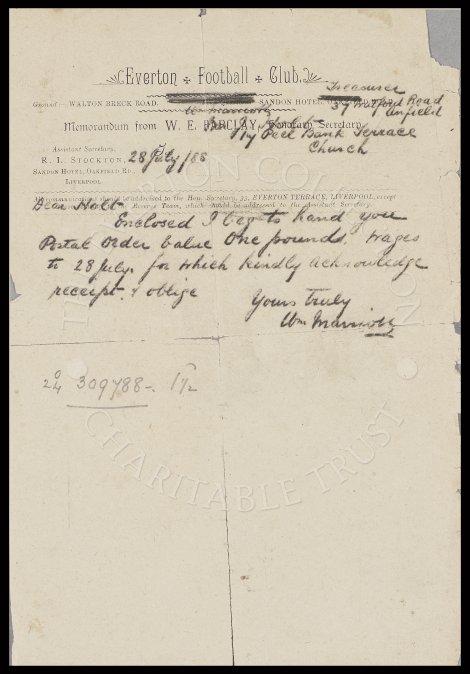 Everton Football Club.
Treasurer
37 Watford Road
Anfield
GROUND:— WALTON BRECK ROAD. SANDON HOTEL,
Wm Marriott
Memorandum from W. E. BARCLAY, Honorary Secretary
Peel Bank Terrace
Church
Assistant Secretary,
R. I. STOCKTON,
SANDON HOTEL, OAKFIELD RD.,
LIVERPOOL
28 July/88
should be addressed to the Hon. Secretary, 33, EVERTON TERRACE, LIVERPOOL, except
Reserve Team, which should be addressed to the Assistant Secretary.
Dear Holt
Enclosed I beg to hand you
Postal Order value One pounds. wages
to 28 July. for which kindly acknowledge
receipt. & oblige
Yours truly
Wm Marriott
309788
CHARITABLE TRUST